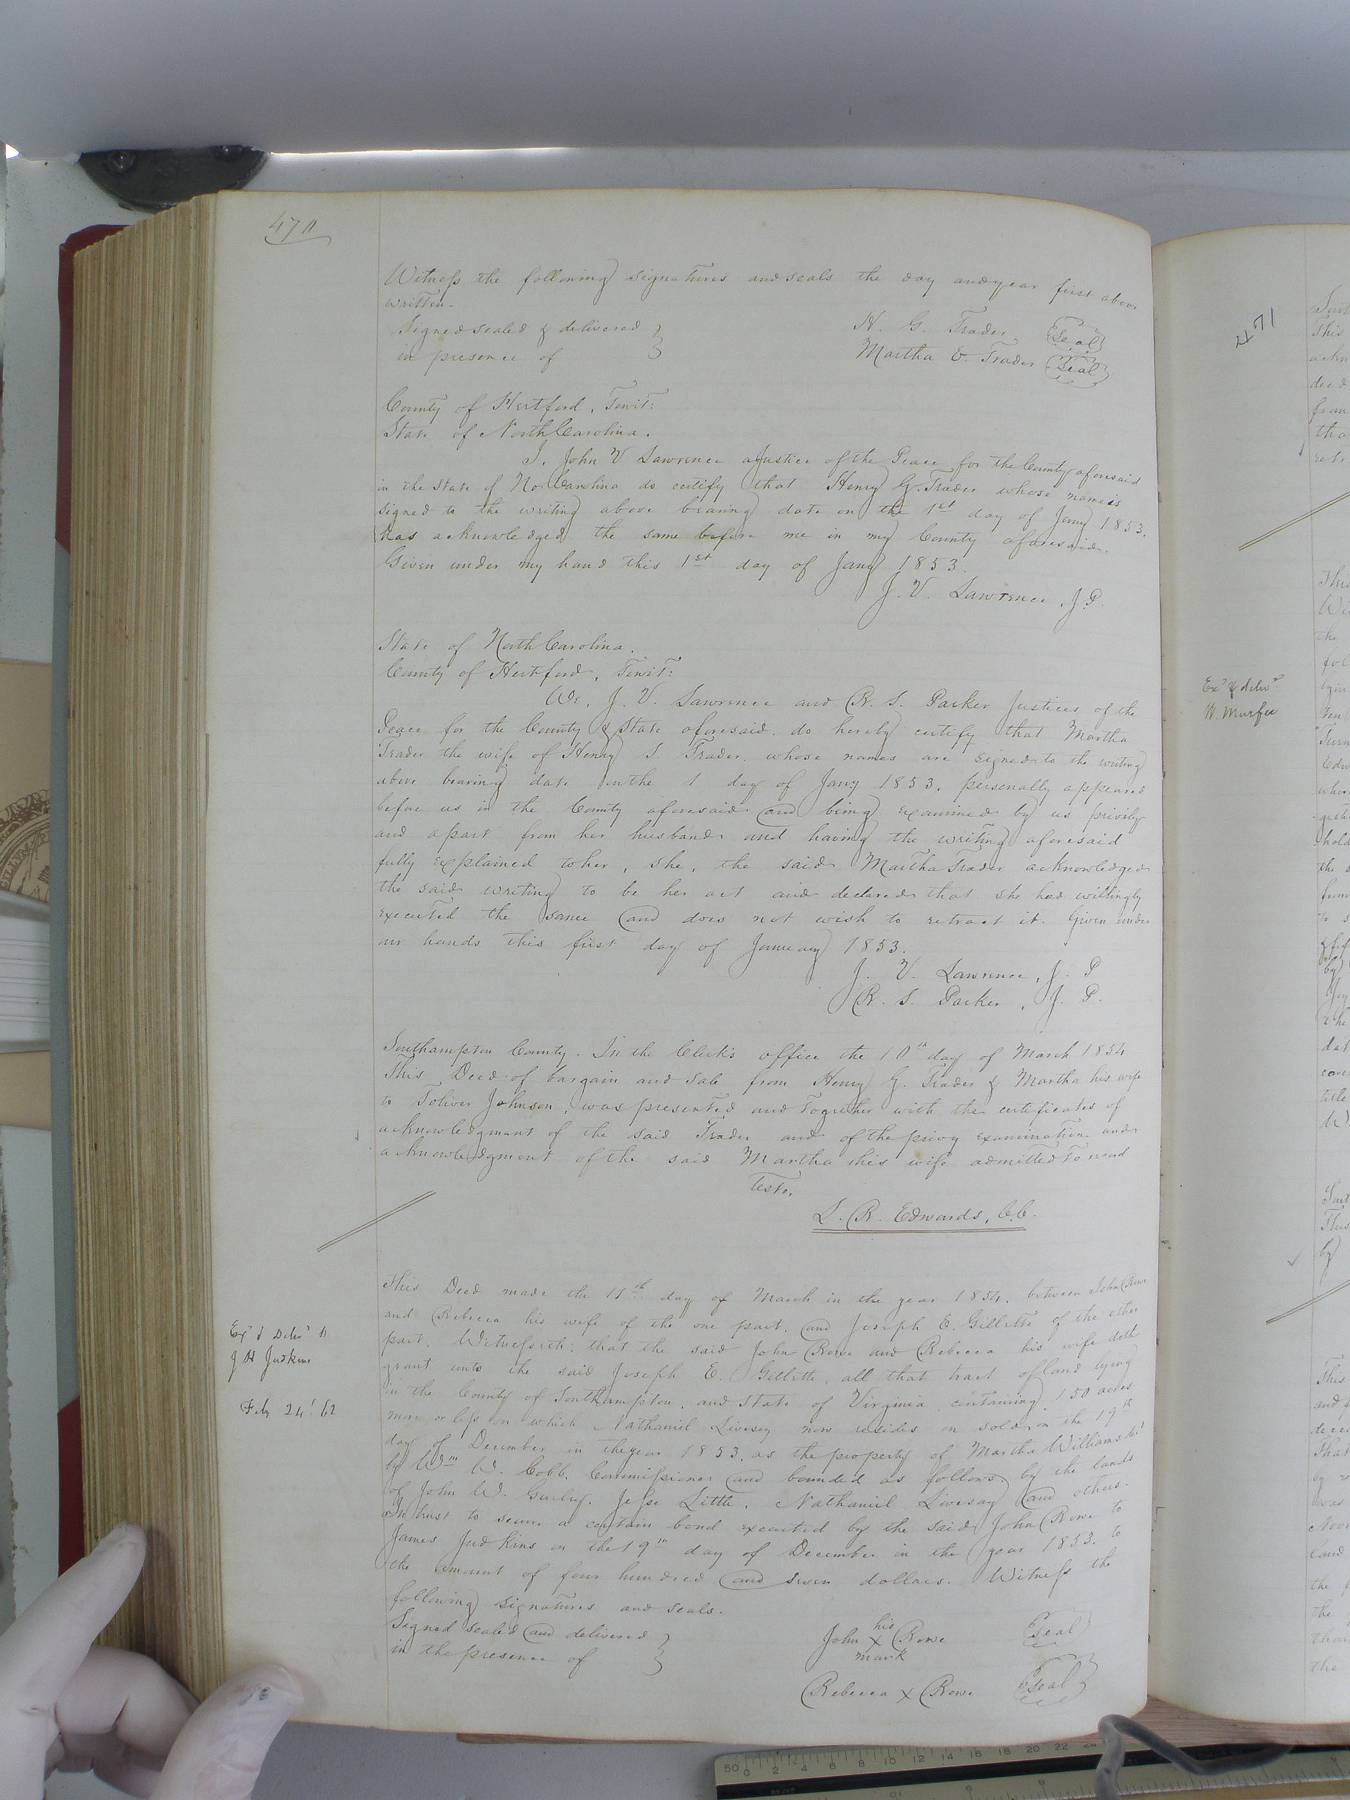 470
Witness the following signatures and seals the day and year first above
written.
Signed sealed & delivered
in presence of
H. G. Trader Seal
Martha E. Trader Seal
County of Hertford, Towit:
State of North Carolina.
I, John V Lawrence a Justice of the Peace for the County aforesaid
in the State of No. Carolina do certify that Henry G. Trader whose name is
signed to the writing above bearing date on the 1st day of Jany 1853.
has acknowledged the same before me in my County aforesaid.
Given under my hand this 1st day of Jany 1853.
J. V. Lawrence, J.P.
State of North Carolina.
County of Hertford, Towit:
We, J. V. Lawrence and R. S. Parker Justices of the
Peace for the County & State aforesaid, do hereby certify that Martha
Trader the wife of Henry Trader, whose names are signed to the writing
above bearing date on the 1 day of Jany 1853, personally appeared
before us in the County aforesaid and being examined by us privily
and apart from her husband and having the writing aforesaid
fully explained to her, she, the said Martha Trader acknowledged
the said writing to be her act and declared that she had willingly
executed the same and does not wish to retract it. Given under
our hands this first day of January 1853.
J. V. Lawrence, J. P
R. S. Parker, J. P.
Southampton County. In the Clerk's office the 10th day of March 1854
This Deed of bargain and sale from Henry G. Trader & Martha his wife
to Toliver Johnson, was presented and together with the certificates of
acknowledgment of the said Trader and of the privy examination and
acknowledgment of the said Martha his wife admitted to record
Teste,
L. R. Edwards, C.C.
Exd & Delivd
J H Judkins
Feby 24' 62
This Deed made the 11th day of March in the year 1854. between John Rowe
and Rebecca his wife of the one part, and Joseph E. Gillette of the other
part. Witnesseth: that the said John Rowe and Rebecca his wife doth
grant unto the said Joseph E. Gillette, all that tract of land lying
in the County of Southampton, and State of Virginia, containing 150 acres
more or less on which Nathaniel Livesay now resides on sold on the 19th
day of December in the year 1853, as the property of Martha Williams
by Wm W. Cobb, Commissioner and bounded as follows by the lands
of John W. Gurley, Jesse Little, Nathaniel Livesay and others.
In trust to secure a certain bond executed by the said John Rowe to
James Judkins on the 19th day of December in the year 1853. to
the amount of four hundred and seven dollars. Witness the
following signatures and seals.
Signed sealed and delivered
in the presence of
his
John X Rowe Seal
mark
Rebecca X Rowe Seal
471
Exd & delivd
W. Murfee